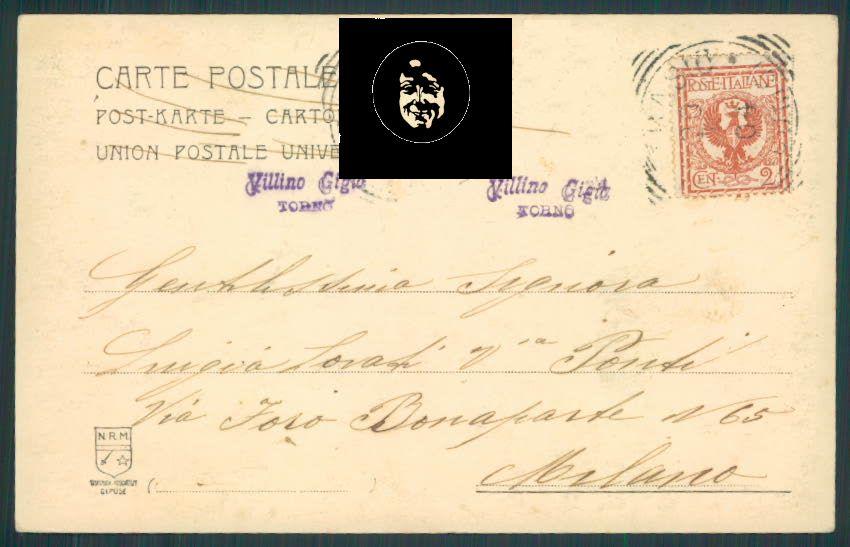 CARTE POSTALE
POST-KARTE – CARTO
UNION POSTALE UNIVE
POSTE ITALIANE
CEN. 2
Villino Gigia
TORNO
Villino Gigia
TORNO
Gentilissima Signora
Luigia Lorati Va Ponti
Via Foro Bonaparte N 65
Milano
N.R.M.
GENOSE